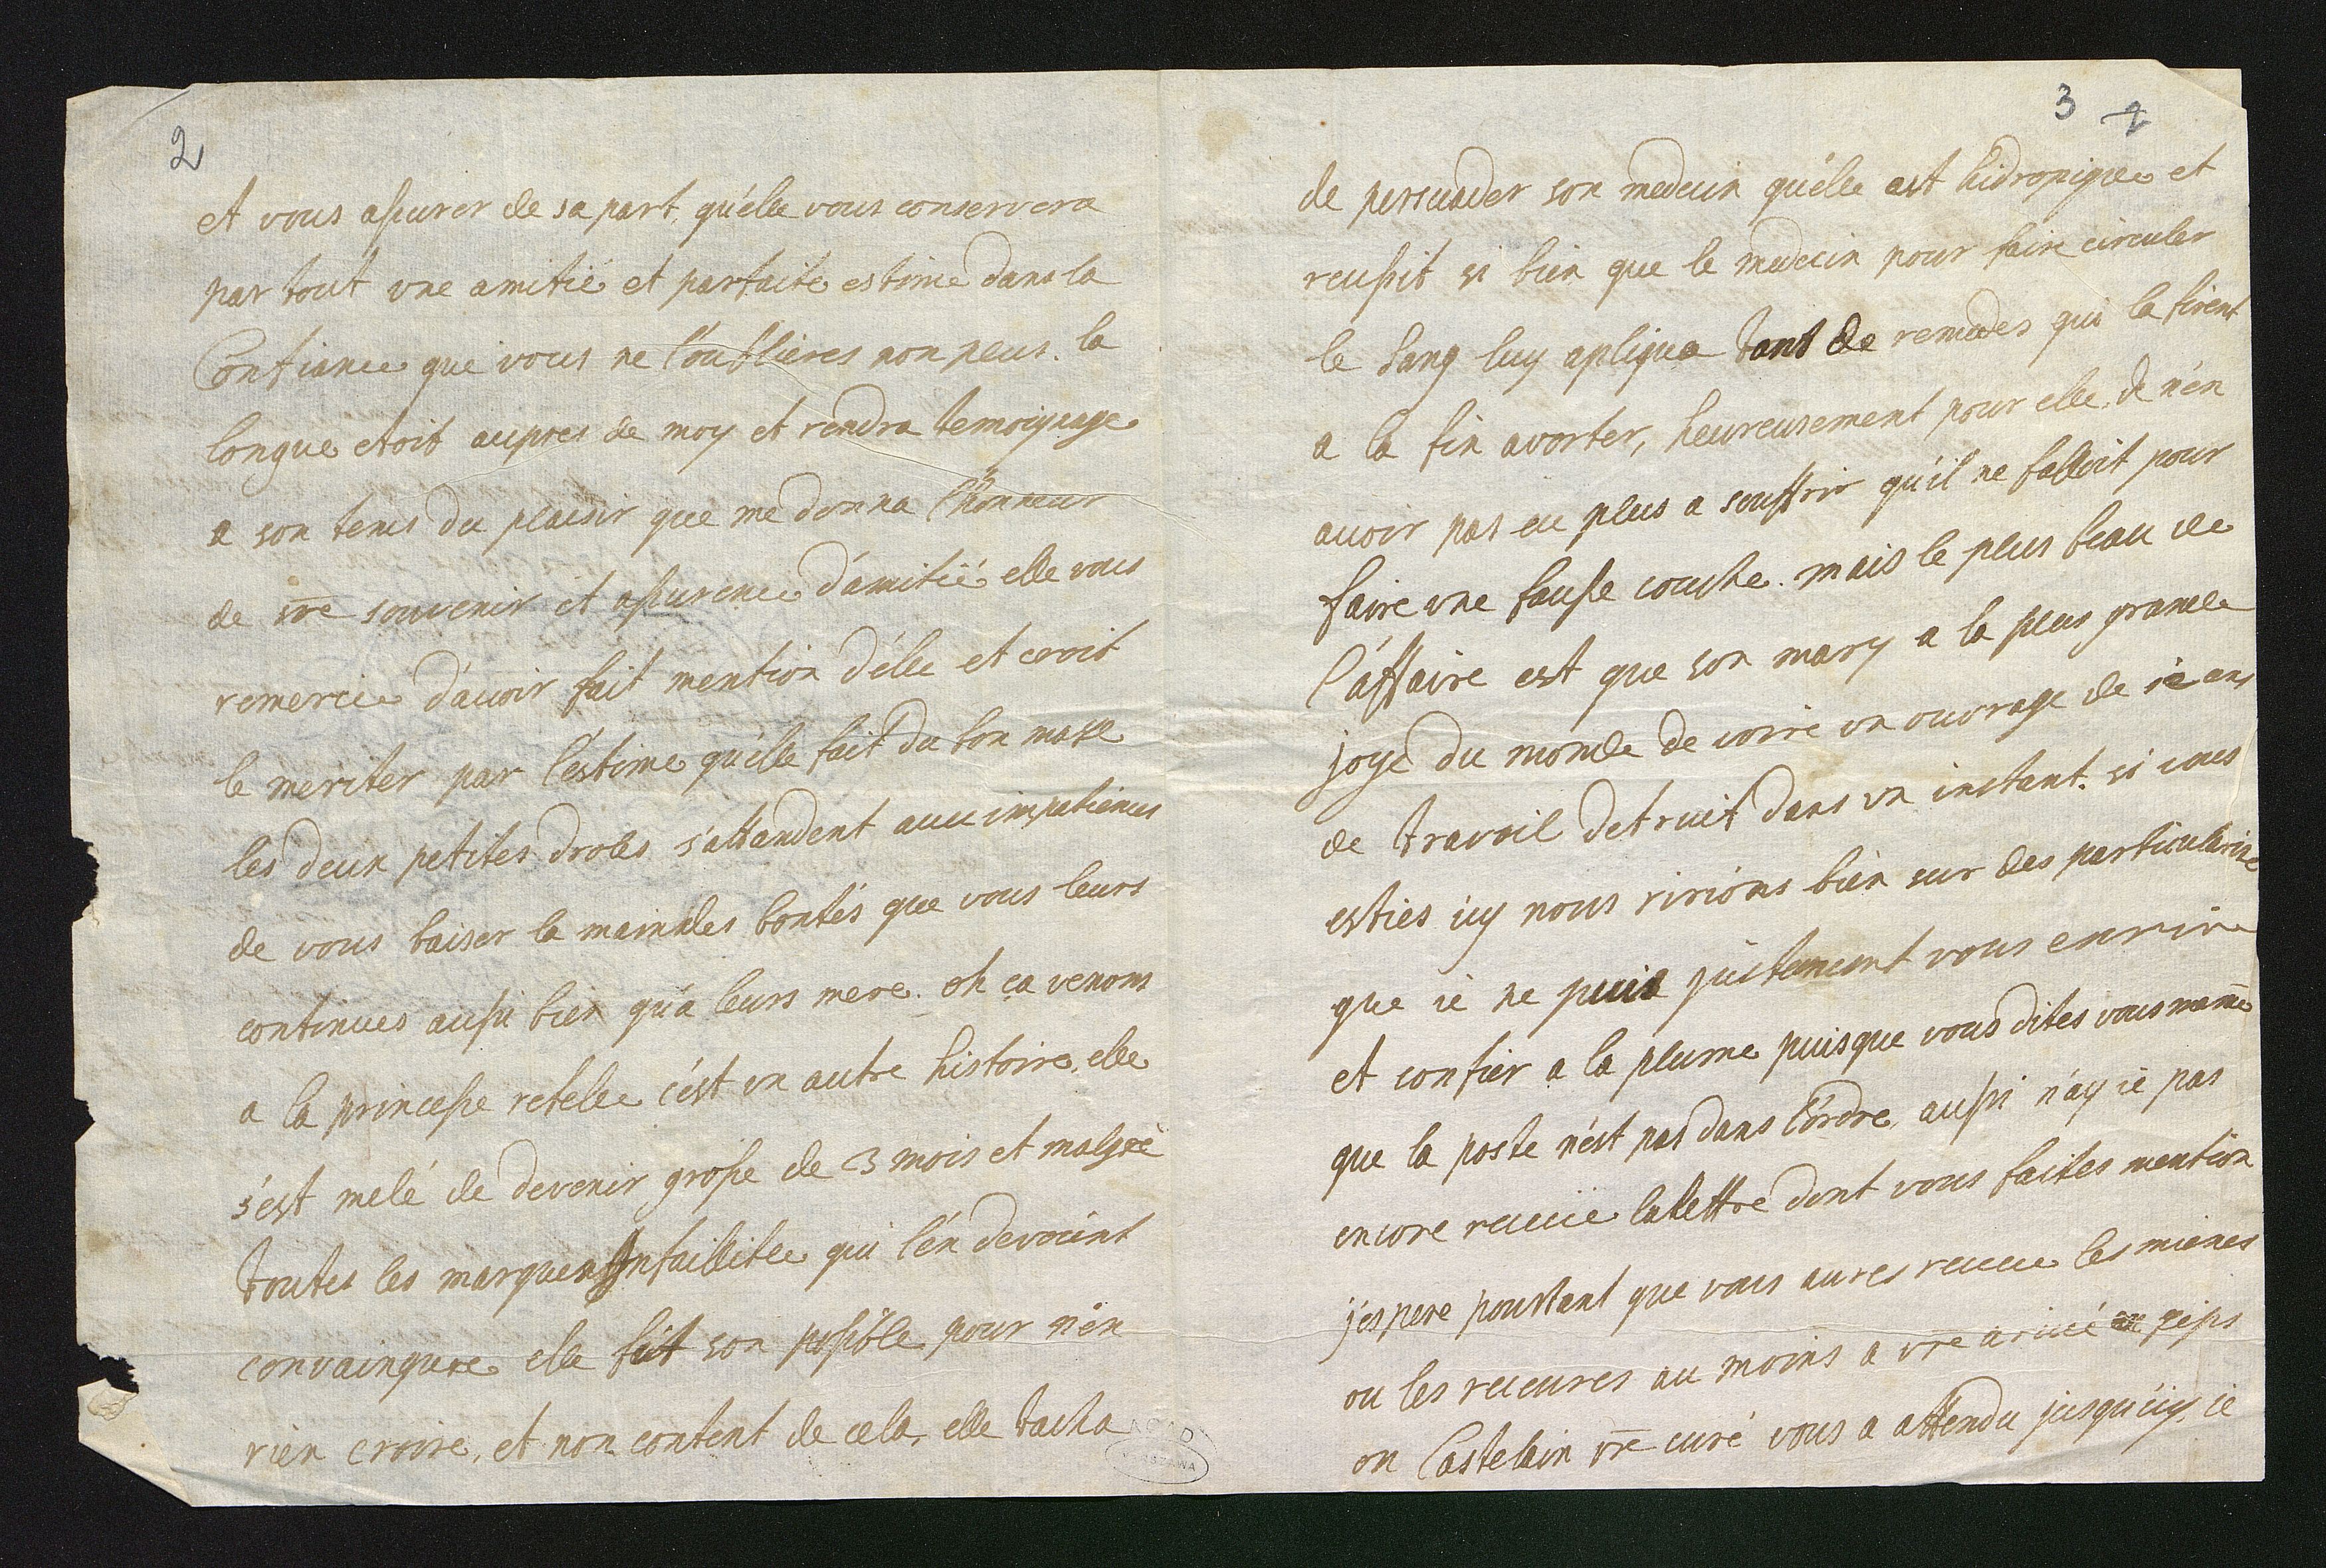 2
et vous assurer de sa part, qu'elle vous conservera
par tout une amitié et parfaite estime dans la
Confiance que vous ne l'oublieres non plus. la
longue etoit aupres de moy et rendra temoignage
a son tems du plaisir que me donna l'honneur
de vre souvenir et assurence d'amitié elle vous
remercie d'avoir fait mention d'elle et croit
le meriter par l'estime qu'elle fait du bon
les deux petites droles s'attandent avec impatience
de vous baiser la main des bontés que vous leurs
continues aussi bien qu'a leurs mere. oh ça venons
a la princesse c'est un autre histoire, elle
s'est melé de devenir grosse de 3 mois et malgré
toutes les marques Infaillible qui l'en devoint
convainquere elle fit son possible pour n'en
rien croire, et non content de cela, elle tacha
3 2
de persuader son medecin qu'elle est hidropique et
reussit si bien que le medecin pour faire circuler
le sang luy apliqua tant de remedes qui la firent
a la fin avorter, heureusement pour elle, de n'en
avoir pas eu plus a souffrir qu'il ne falloit pour
faire une fausse couche. mais le plus beau de
l'affaire est que son mary a la plus grande
joye du monde de voire un ouvrage de ans
de travail detruit dans un instant. si vous
esties icy nous ririons bien sur des particularite
que ie ne puis justement vous enrire
et confier a la plume puisque vous dites vous meme
que la poste n'est pas dans l'ordre, aussi n'ay ie pas
encore recüe la lettre dont vous faites mention
j'espere pourtant que vous aures recue les mienes
ou les receures au moins a vre arivé
on Castelain vre curé vous a attendu jusqu'icy, ie